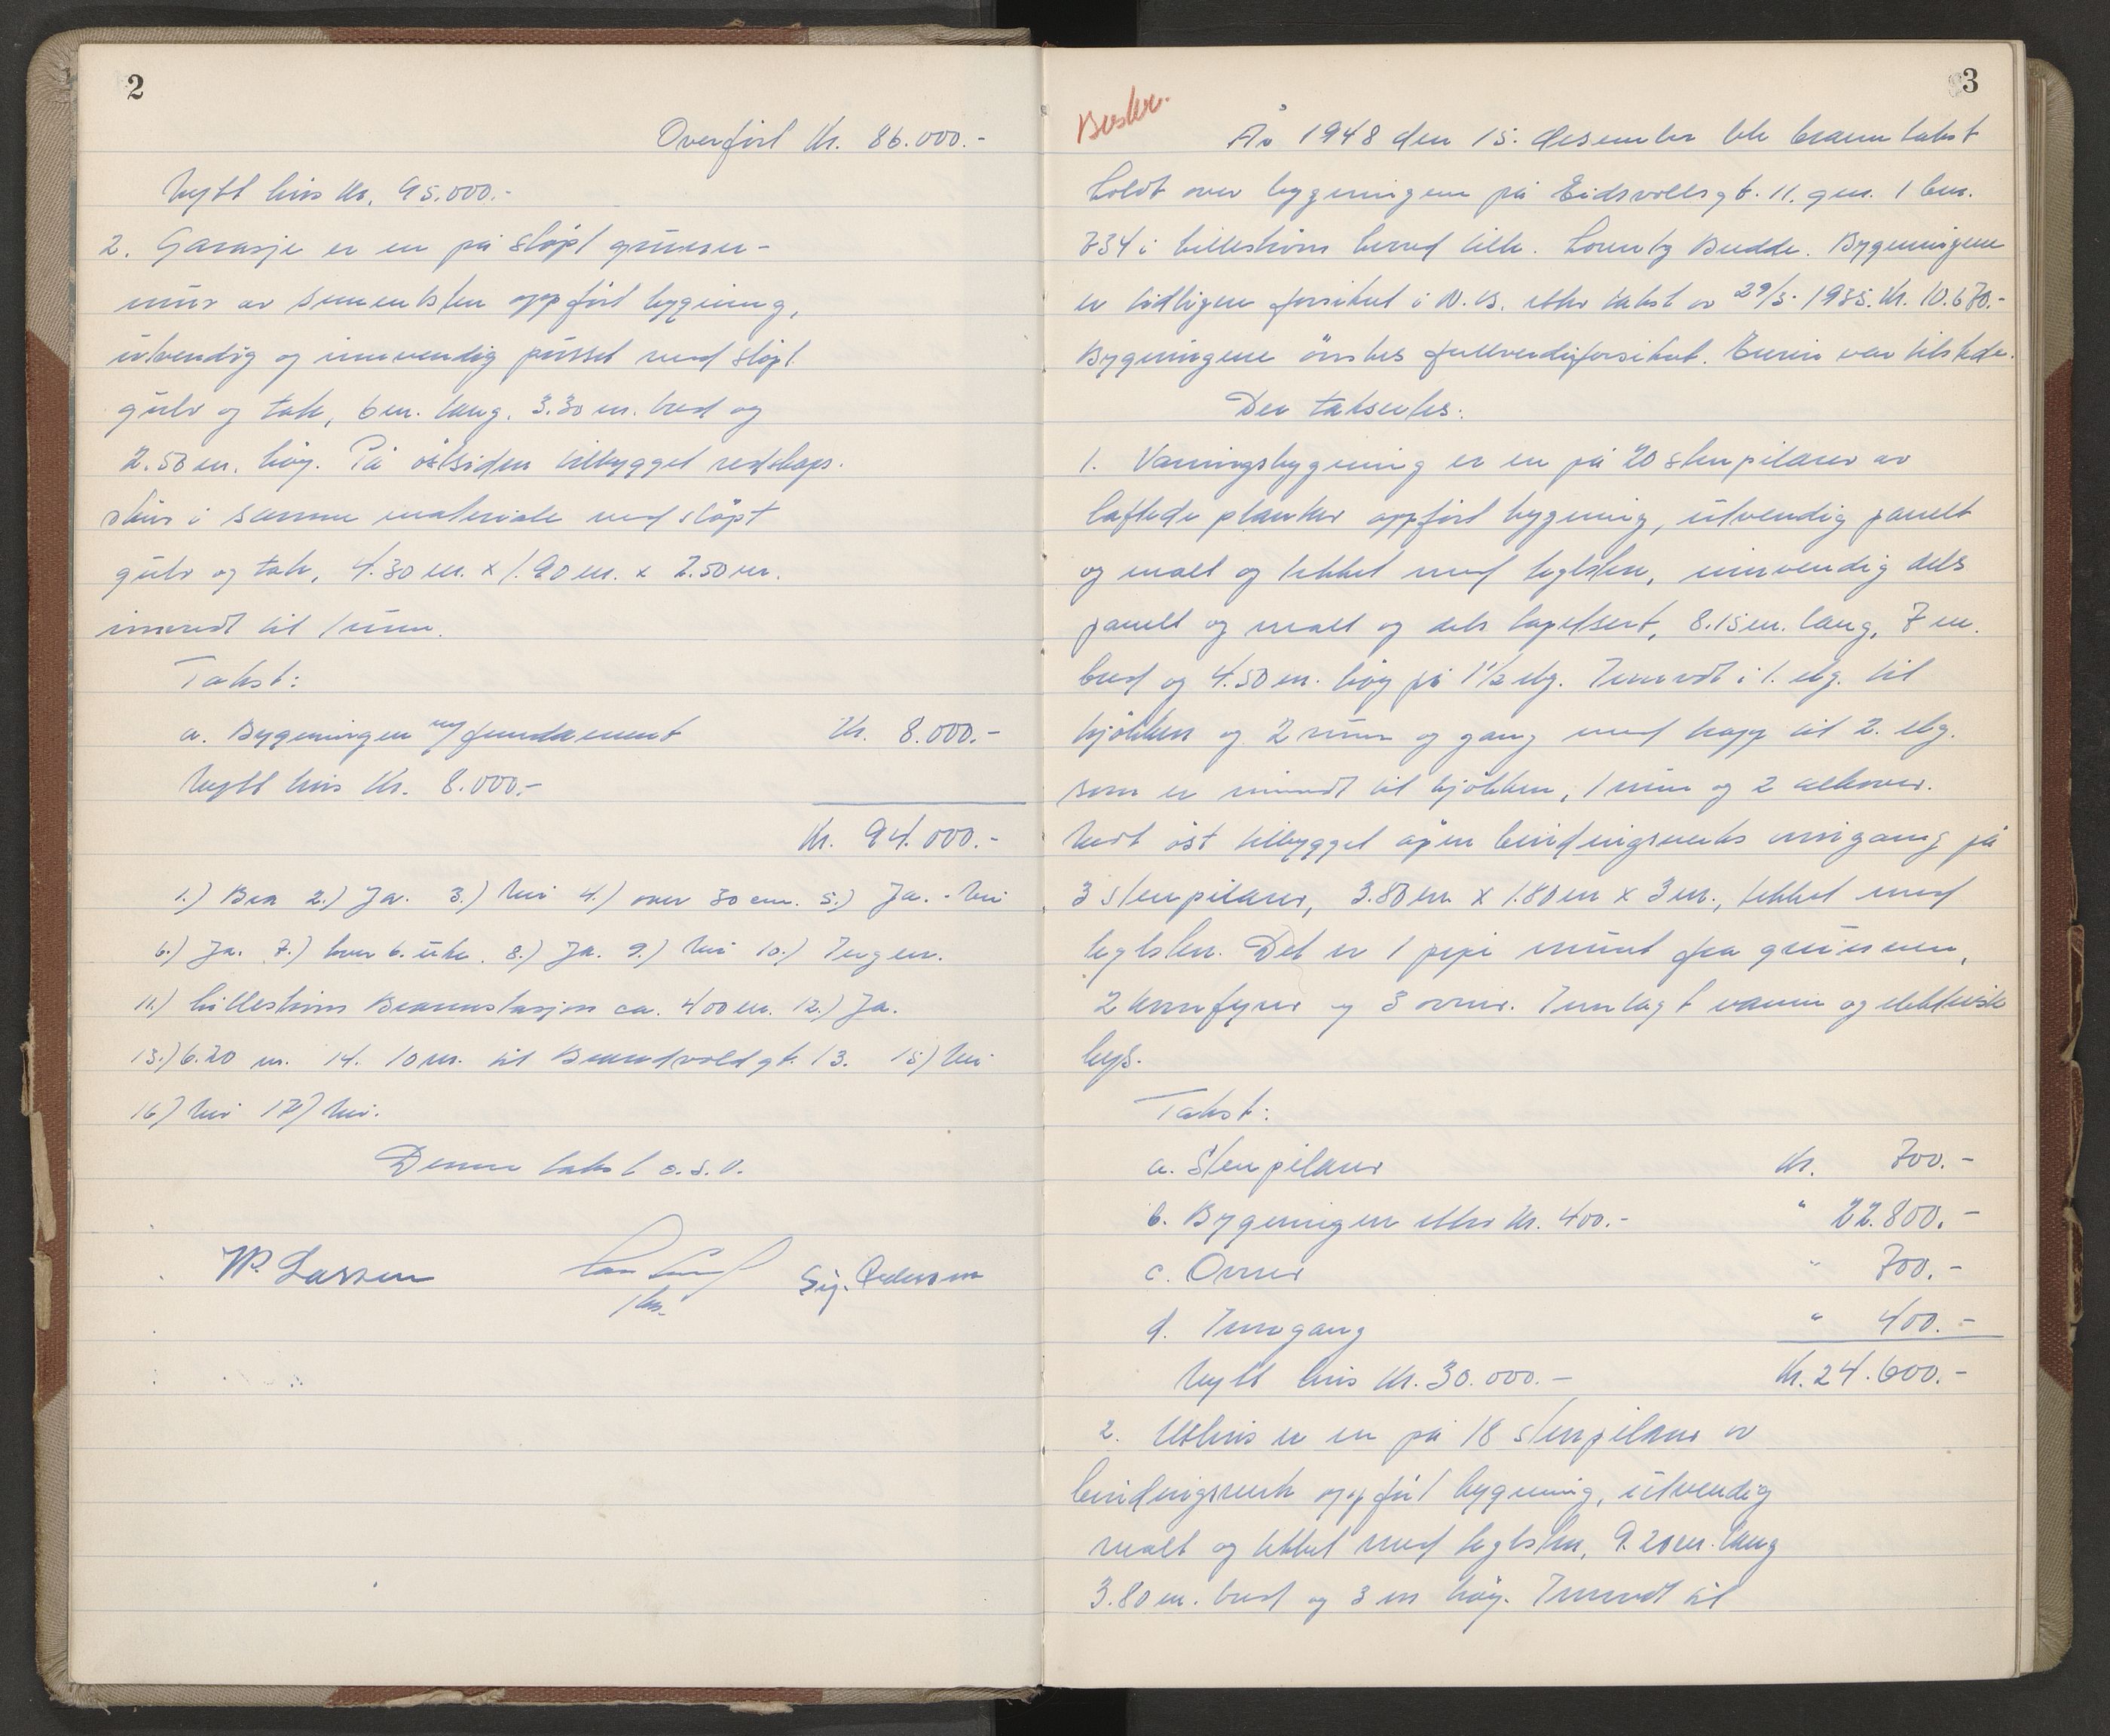 2
Overført Kr. 86.000.-
Nytt hus Kr. 95.000.-
2. Garasje er en på støpt grunn-
mur av sementsten oppført bygning,
utvendig og innvendig pusset med støpt
gulv og tak, 6 m. lang, 3.30 m. bred og
2.50 m. høy. På østsiden tilbygget redskaps-
skur i samme materiale med støpt
gulv og tak, 4.30 m. x 1.90 m. x 2.50 m.
innredt til 1 rum.
Takst:
a. Bygningen m/fundament Kr. 8.000.-
Nytt hus Kr. 8.000.-
Kr. 94.000.-
1.) Bra 2.) Ja. 3.) Nei 4.) over 30 cm. 5.) Ja. - Nei
6.) Ja. 7.) hver 6. uke. 8.) Ja. 9.) Nei 10.) Ingen.
11.) Lillestrøm Brannstasjon ca. 400 m. 12.) Ja.
13.) 6.20 m. 14. 10 m. til Brandvoldgt. 13. 15) Nei
16) Nei 17) Nei.
Denne takst o.s.v.
W. Larsen Sig. Pedersen
3
Beskr.
År 1948 den 15. desember ble branntakst
holdt over bygningene på Eidsvollsgt. 11. gnr. 1 bnr.
734 i Lillestrøm herred tilh. Budde. Bygningene
er tidligere forsikret i N.B. etter takst av 29/5. 1935. Kr. 10.670.-
Bygningene ønskes fullverdiforsikret. Eieren var tilstede.
Der takseres:
1. Våningsbygning er en på 20 stenpilarer av
laftede planker oppført bygning, utvendig panelt
og malt og tekket med teglsten, innvendig dels
panelt og malt og dels tapetsert, 8.15 m. lang, 7 m.
bred og 4.50 m. høy på 1 1/2 etg. Innredt i 1. etg. til
kjøkken og 2 rum og gang med trapp til 2. etg.
som er innredt til kjøkken, 1 rum og 2 alkover.
Mot øst tilbygget åpen bindingsverks inngang på
3 stenpilarer, 3.80 m x 1.80 m x 3 m., tekket med
teglsten. Det er 1 pipe murt fra grunnen,
2 komfyrer og 3 ovner. Innlagt vann og elektrisk
lys.
Takst:
a. Stenpilarer Kr. 700.-
b. Bygningen etter Kr. 400.- " 22.800.-
c. Ovner " 700.-
d. Inngang " 400.-
Nytt hus Kr. 30.000.- Kr. 24.600.-
2. Uthus er en på 18 stenpilarer av
bindingsverk oppført bygning, utvendig
malt og tekket med teglsten, 9.20 m. lang
3.80 m. bred og 3 m høy. Innredt til